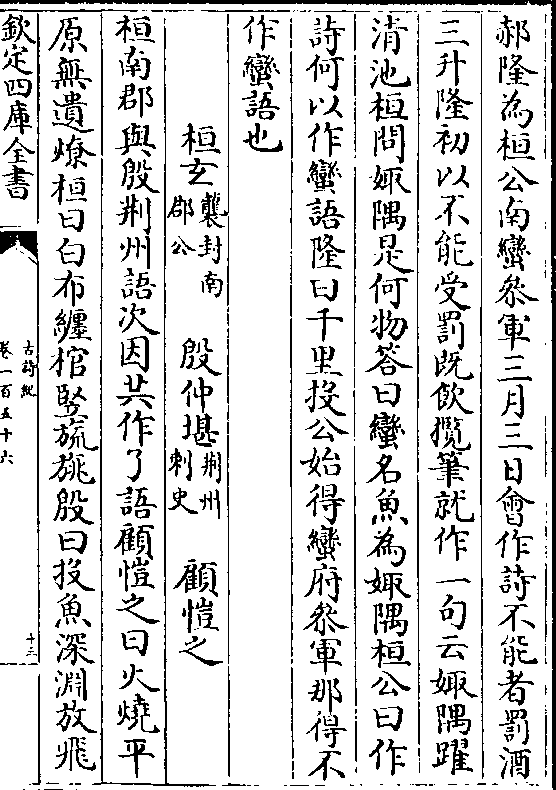 郝隆為桓公南蠻叅軍三月三日會作詩不能者罰酒
三升隆初以不能受罰既飲攬筆就作一句云娵隅躍
清池桓問娵隅是何物答曰蠻名魚為娵隅桓公曰作
詩何以作蠻語隆曰千里投公始得蠻府叅軍那得不
作蠻語也
桓玄襲封南郡公 殷仲堪荆州刺史 顧愷之
桓南郡與殷荆州語次因共作了語顧愷之曰火燒平
原無遺燎桓曰白布纏棺竪旒旐殷曰投魚深淵放飛
欽定四庫全書
古詩紀
卷一百五十六
十三